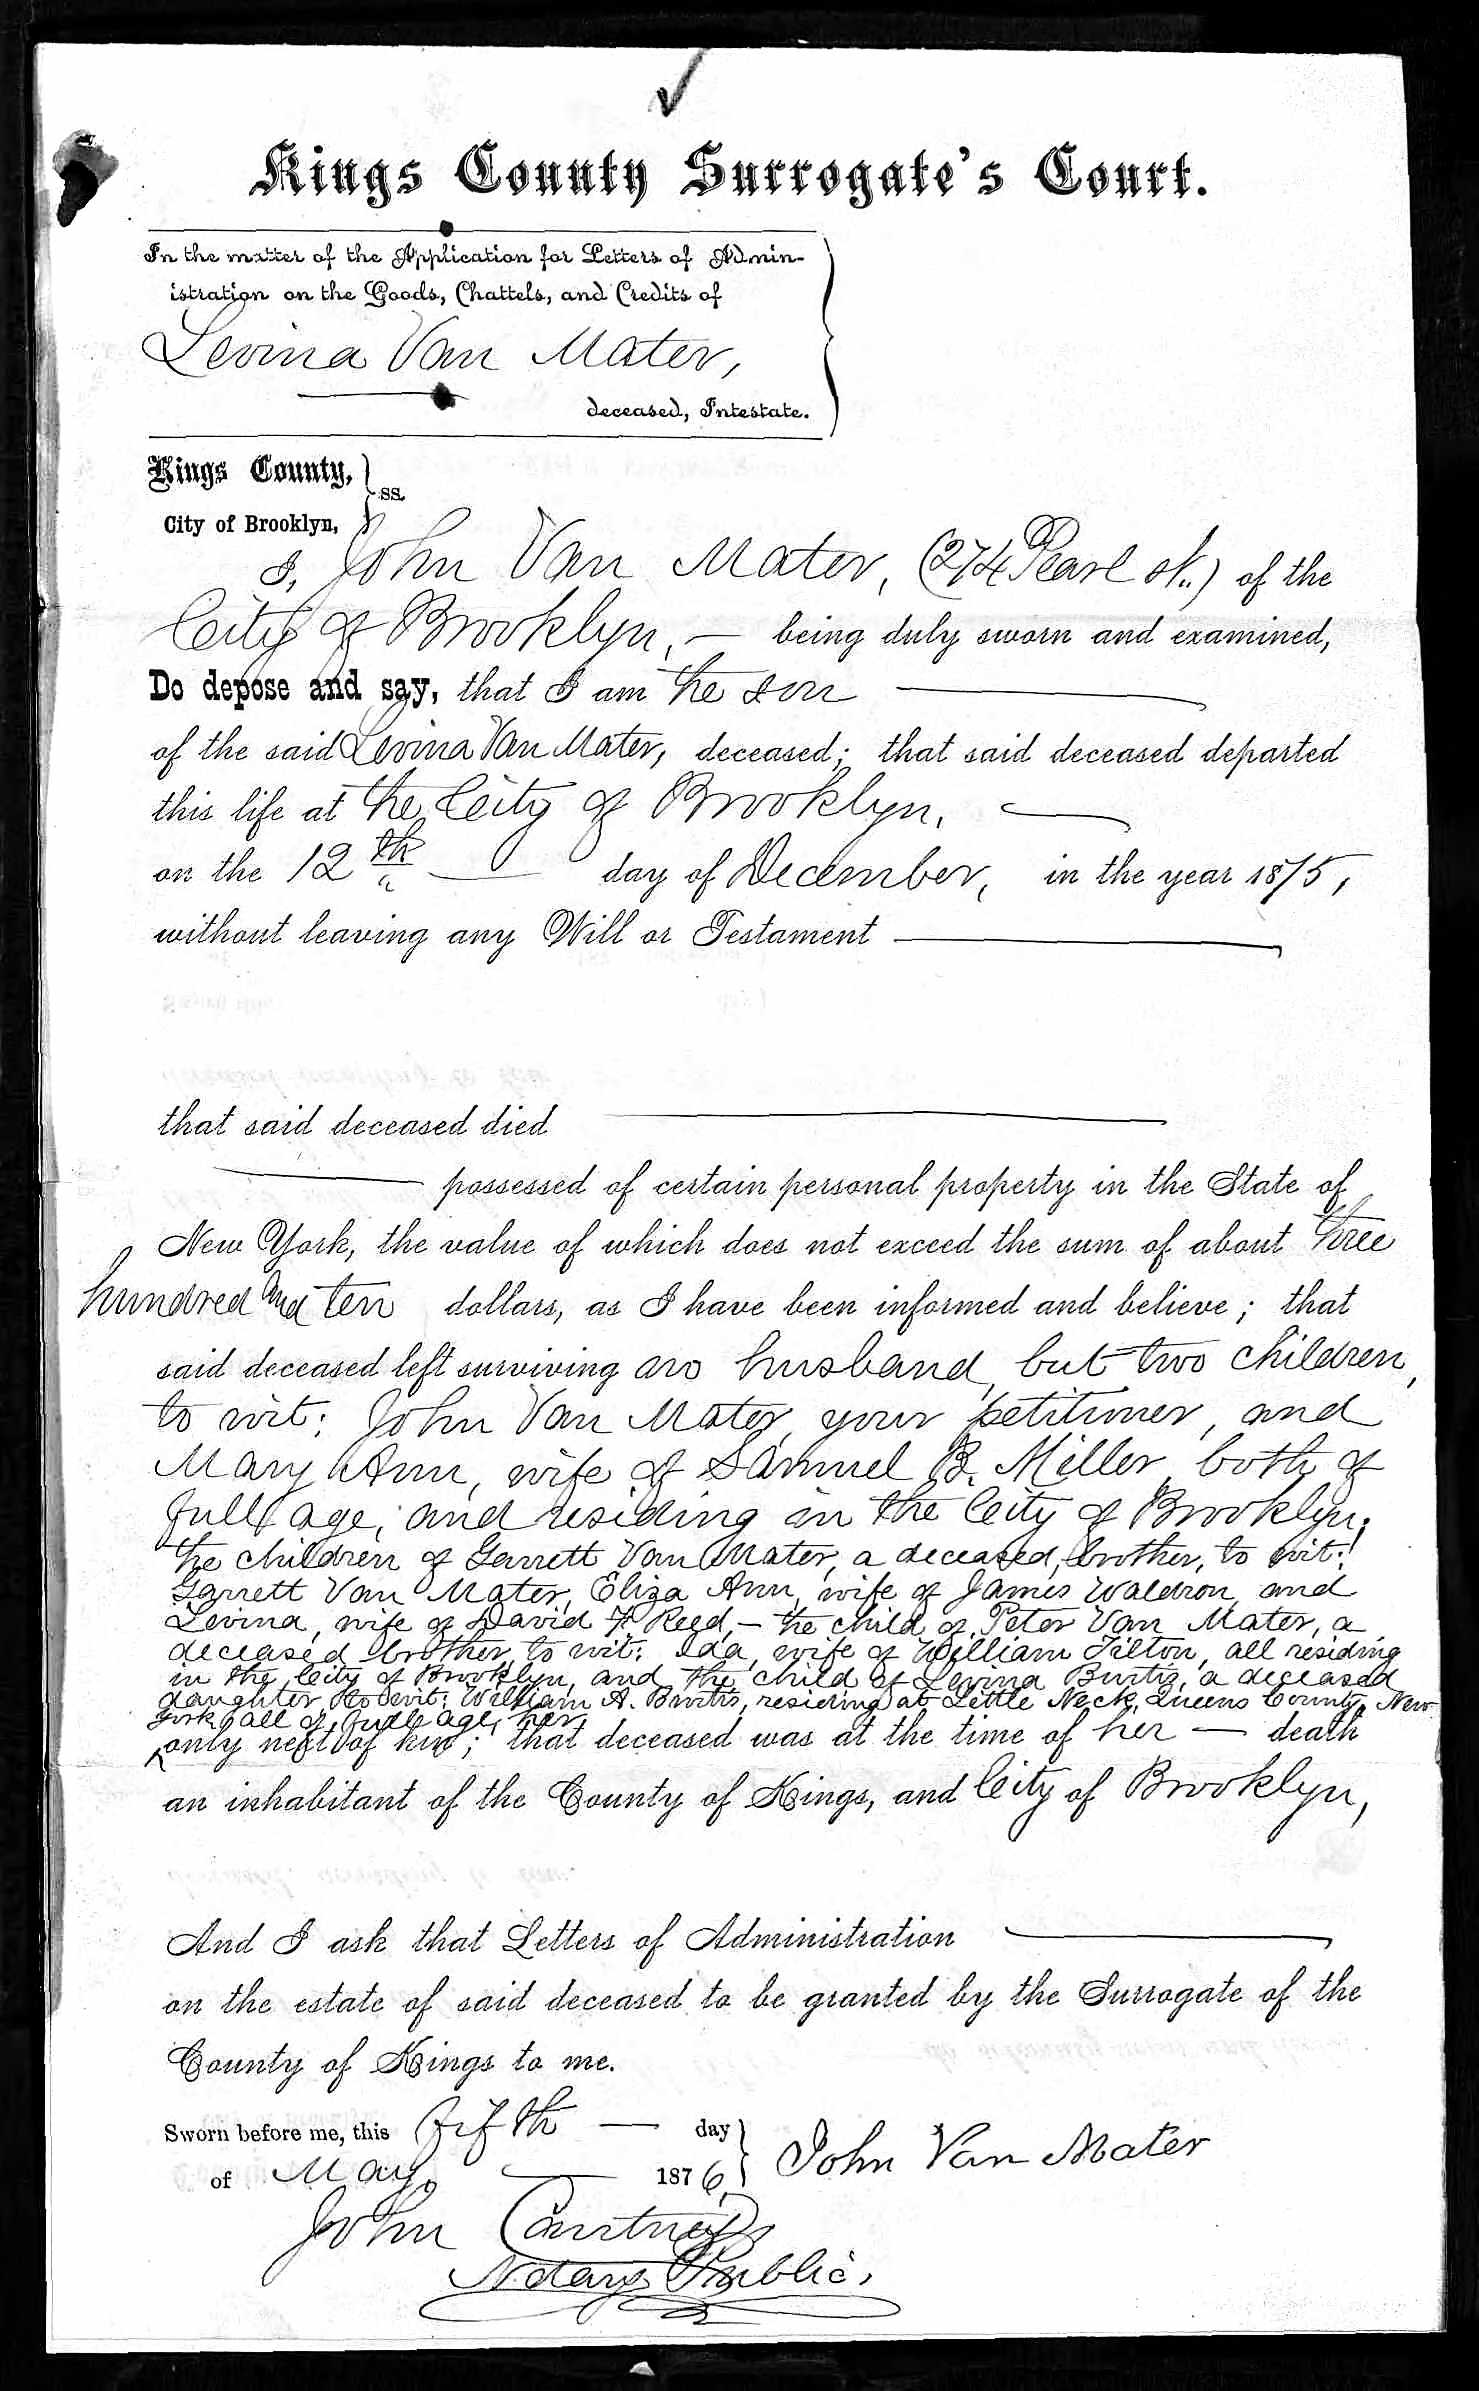 Kings County Surrogate's Court.
In the matter of the Application for Letters of Admin-
istration on the Goods, Chattels, and Credits of
Levina Van Mater,
deceased, Intestate.
Kings County,
ss.
City of Brooklyn,
I, John Van Mater, (274 Pearl st.) of the
City of Brooklyn, — being duly sworn and examined,
Do depose and say, that I am the son
of the said Levina Van Mater, deceased; that said deceased departed
this life at the City of Brooklyn,
on the 12th day of December, in the year 1875,
without leaving any Will or Testament
that said deceased died
possessed of certain personal property in the State of
New York, the value of which does not exceed the sum of about three
hundred and ten dollars, as I have been informed and believe; that
said deceased left surviving no husband, but two children,
to wit: John Van Mater, your petitioner, and
Mary Ann, wife of Samuel B. Miller, both of
full age, and residing in the City of Brooklyn;
the children of Garrett Van Mater, a deceased, brother, to wit:
Garrett Van Mater, Eliza Ann, wife of James Waldron, and
Levina, wife of David F. Reed, — the child of Peter Van Mater, a
deceased brother, to wit: Ida, wife of William Tilton, all residing
in the City of Brooklyn, and the child of Levina Burtis, a deceased
daughter, to wit: William A. Burtis, residing at Little Neck, Queens County, New
York, all of full age, her
only next of kin; that deceased was at the time of her — death
an inhabitant of the County of Kings, and City of Brooklyn,
And I ask that Letters of Administration
on the estate of said deceased to be granted by the Surrogate of the
County of Kings to me.
Sworn before me, this fifth — day
of May, 1876,
John Van Mater
John Courtney
Notary Public,